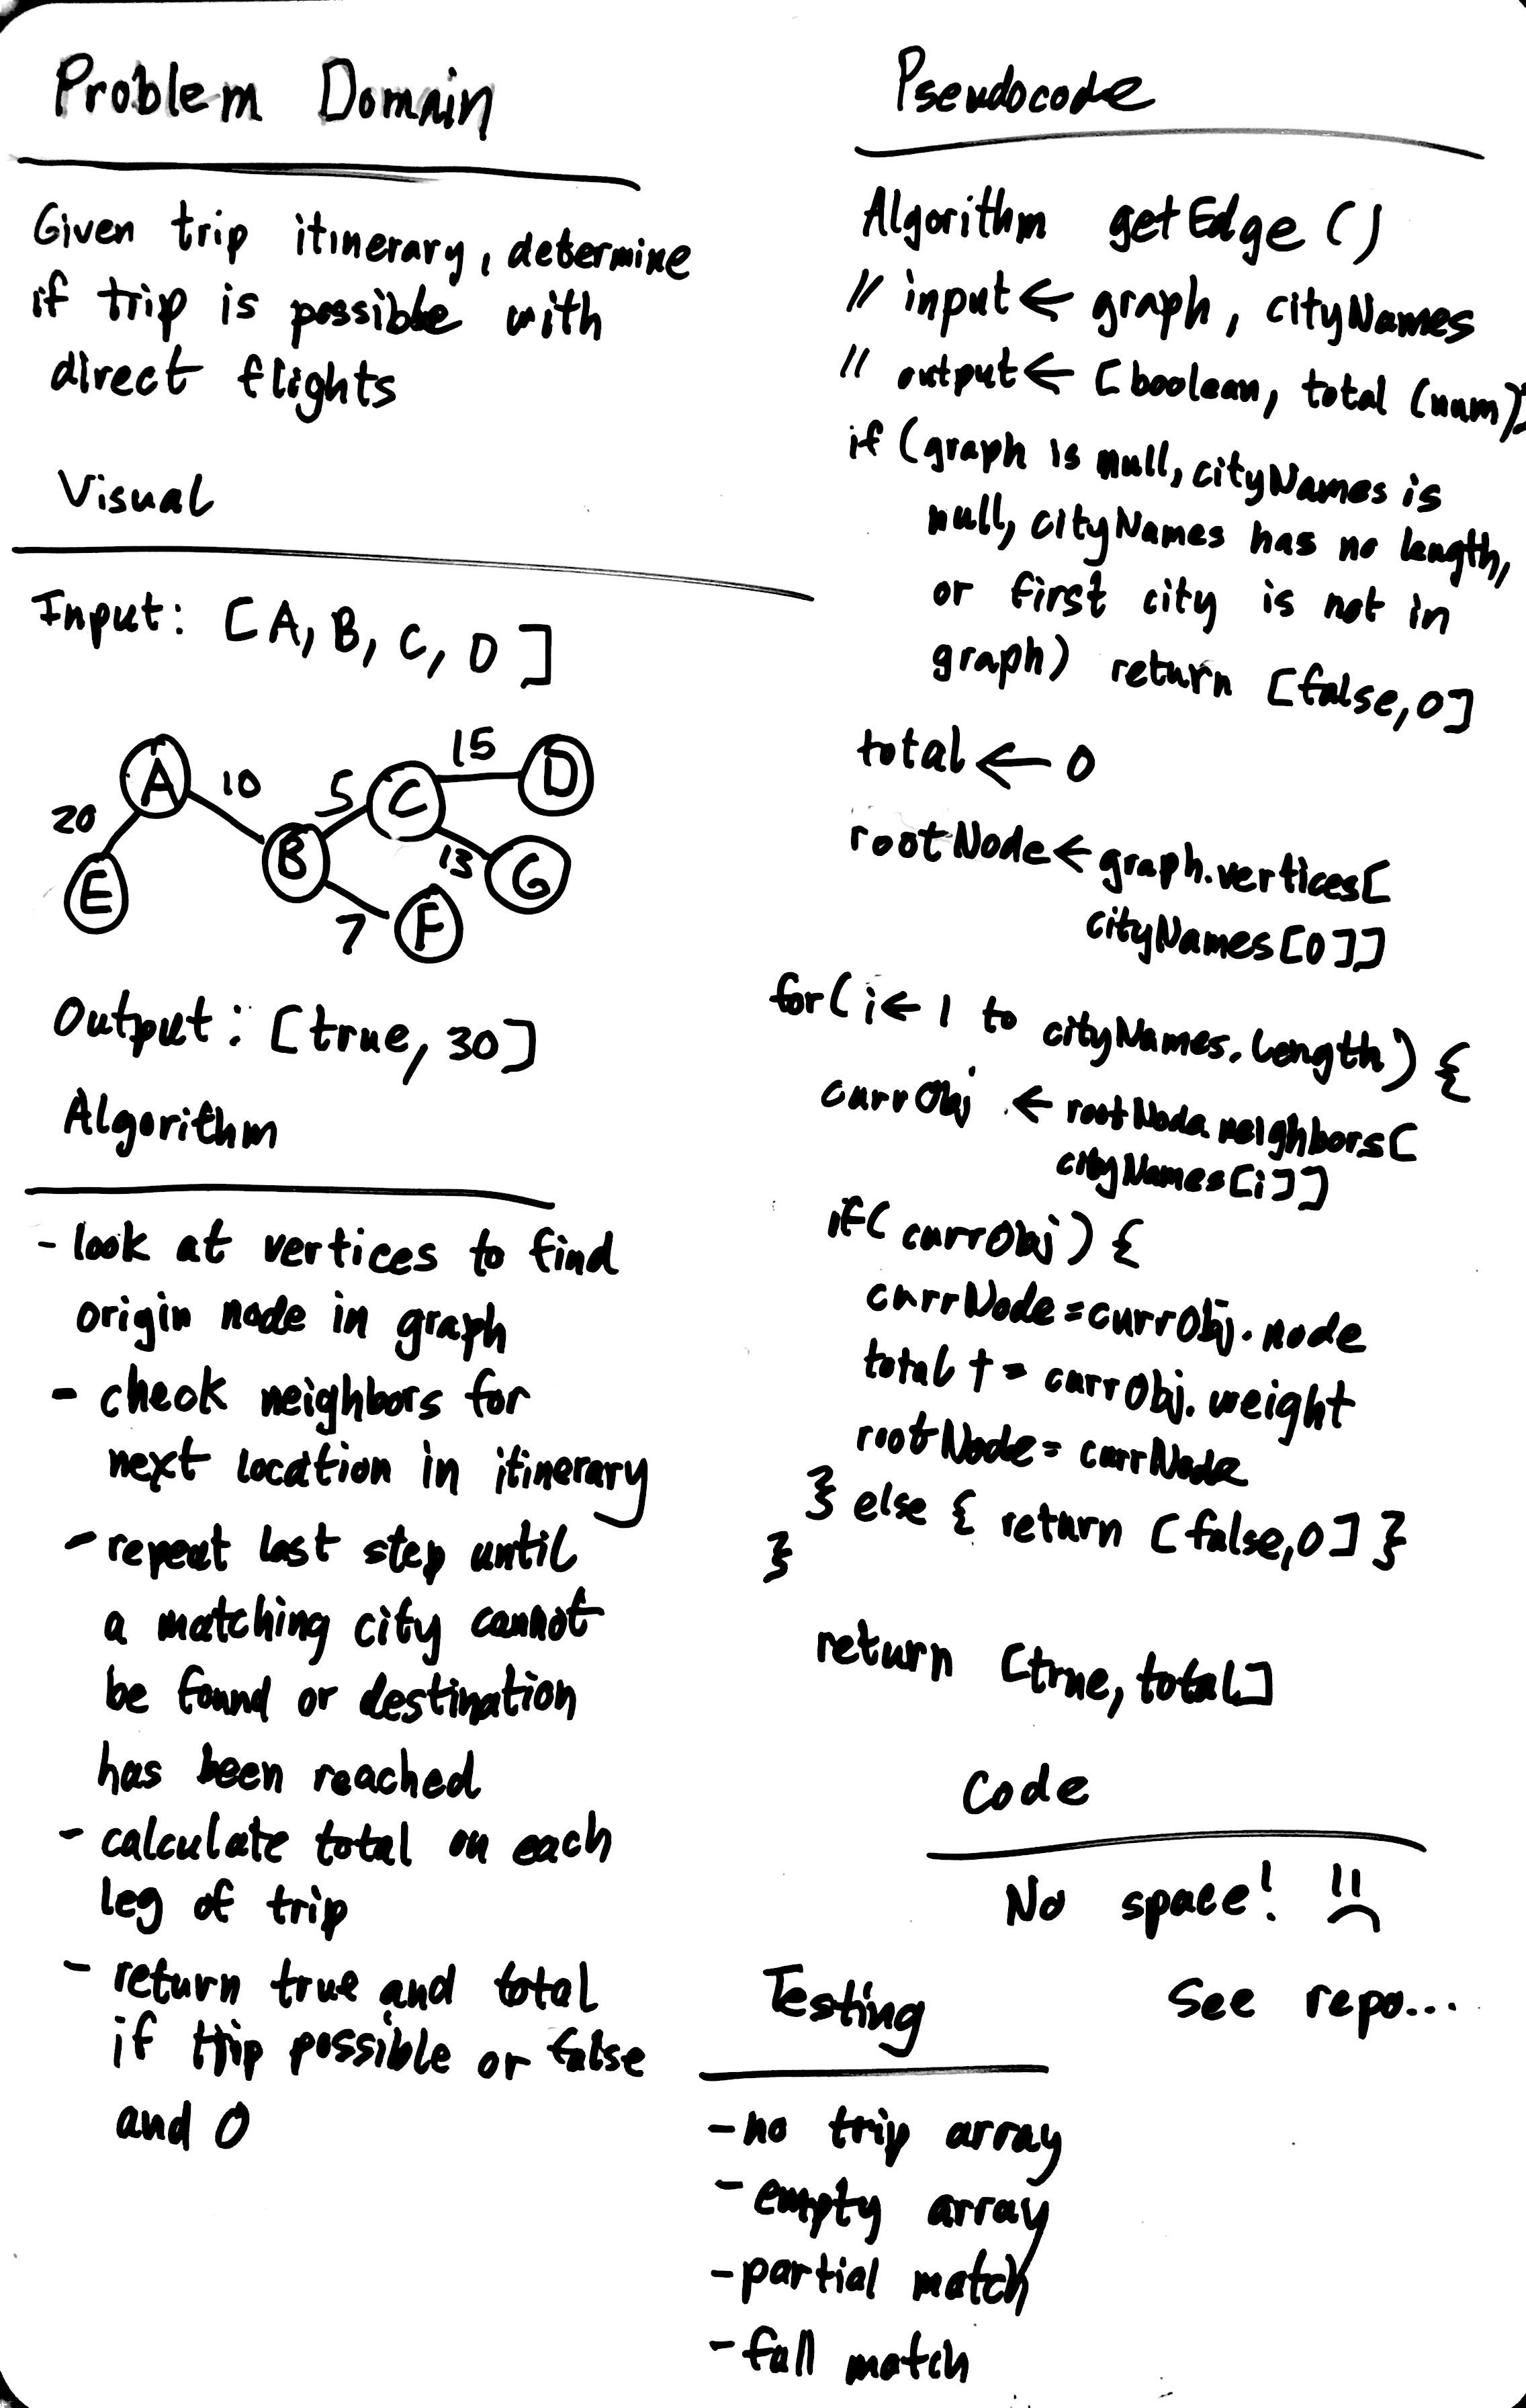 Problem Domain
Given trip itinerary, determine
if trip is possible with
direct flights
Visual
Input: [A, B, C, D]
15
A
10
5
C
D
20
B
13
G
E
7
F
Output: [true, 30]
Algorithm
- look at vertices to find
origin node in graph
- check neighbors for
next location in itinerary
- repeat last step until
a matching city cannot
be found or destination
has been reached
- calculate total on each
leg of trip
- return true and total
if trip possible or false
and 0
Pseudocode
Algorithm getEdge()
// input ← graph, cityNames
// output ← [boolean, total (num)]
if (graph is null, cityNames is
null, cityNames has no length,
or first city is not in
graph) return [false, 0]
total ← 0
rootNode ← graph.vertices[
cityNames[0]]
for( i ← 1 to cityNames.length) {
currObj ← rootNode.neighbors[
cityNames[i]]
if( currObj ) {
currNode = currObj.node
total += currObj.weight
rootNode = currNode
} else { return [false, 0] }
}
return [true, total]
Code
No space!
See repo...
Testing
- no trip array
- empty array
- partial match
- full match